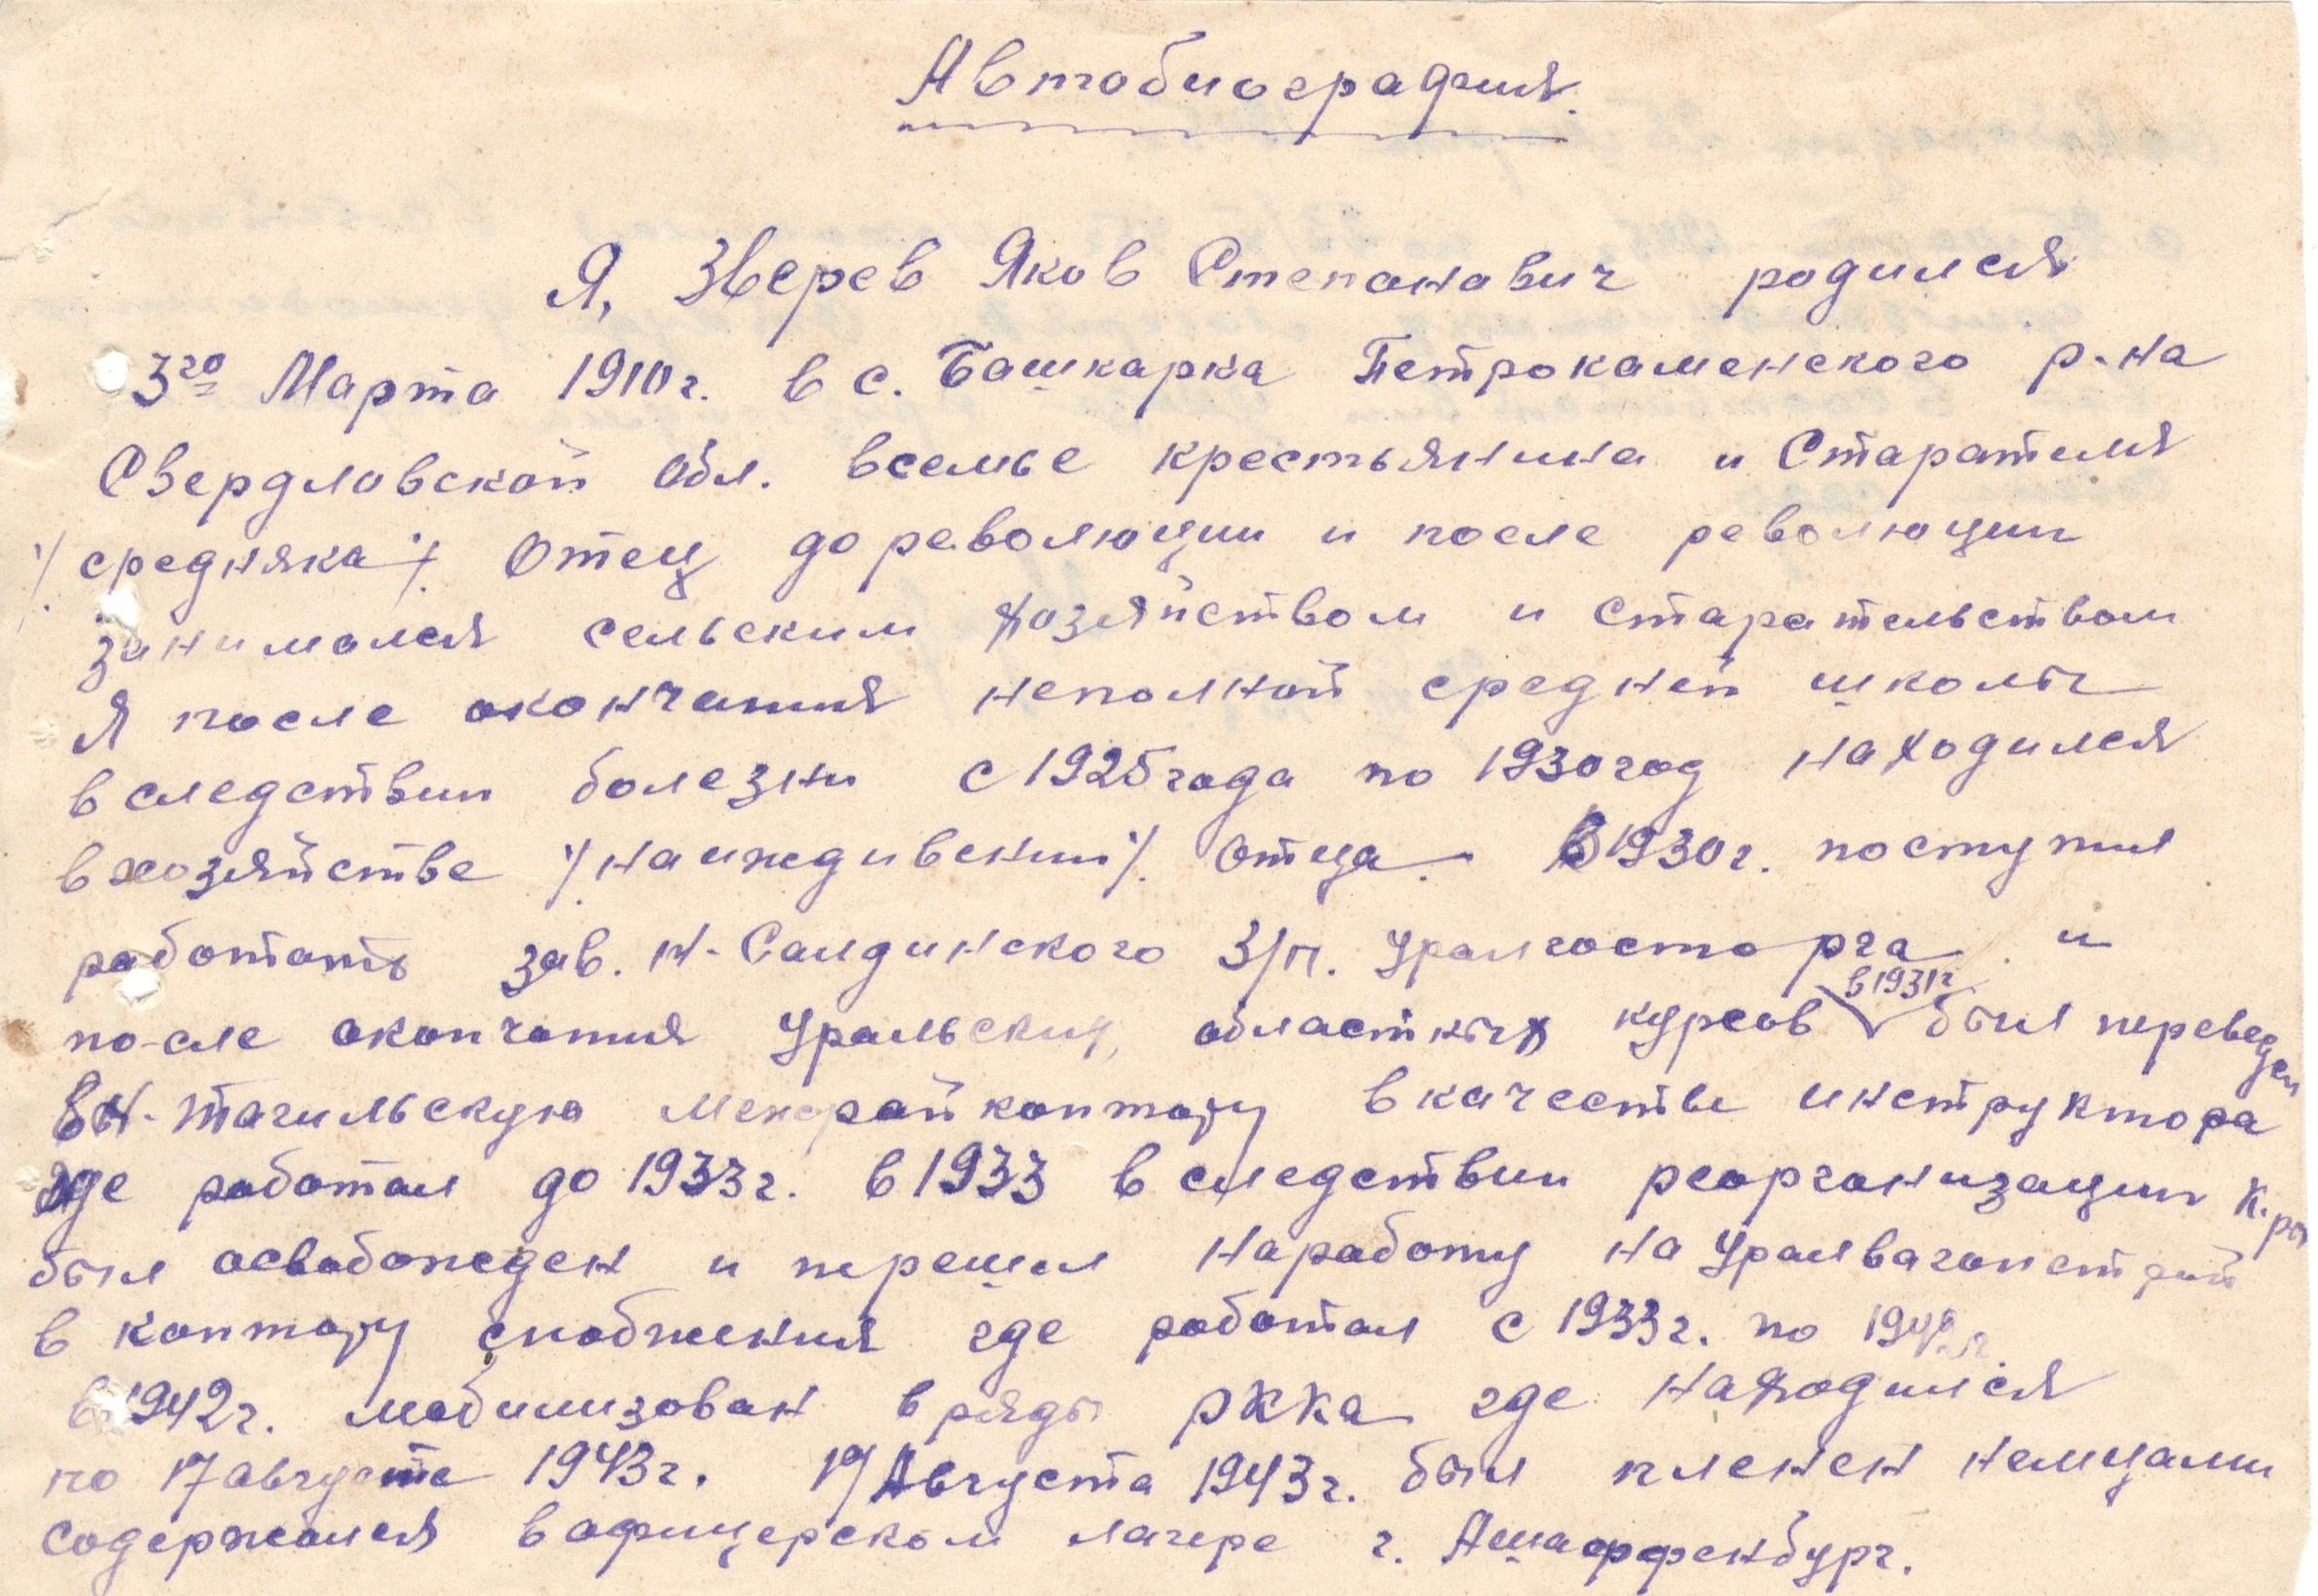 Автобиография.
Я, Зверев Яков Степанавич родился
3го Марта 1910г. в с. Башкарка Петрокаменского р-на
Свердловской обл. всемье крестьянина и Старателя
/.середняка/. Отец до революции и после революции
занимался сельским хозяйством и старательством
Я после окончания неполной средней школы
вследствии болезни с 1925 года по 1930 год находился
в хозяйстве /.на иждивении/. Отца. В 1930г. поступил
работать зав. Н-Салдинского З/п. Уралгосторга и
после окончания Уральских, областных курсов в 1931г был переведен
в Н-Тагильскую Межрайконтору в качестве инструктора
где работал до 1933г. в 1933 в следствии реорганизации К-ры
был освобожден и перешел наработу на Уралвагонстрой
в контору снабжения где работал с 1933г. по 1942г
в 1942г. мобилизован в ряды РККА где находился
по 17 августа 1943г. 17 Августа 1943г. был пленен немцами
содержался в офицерском лагере г. Ашаффенбург.